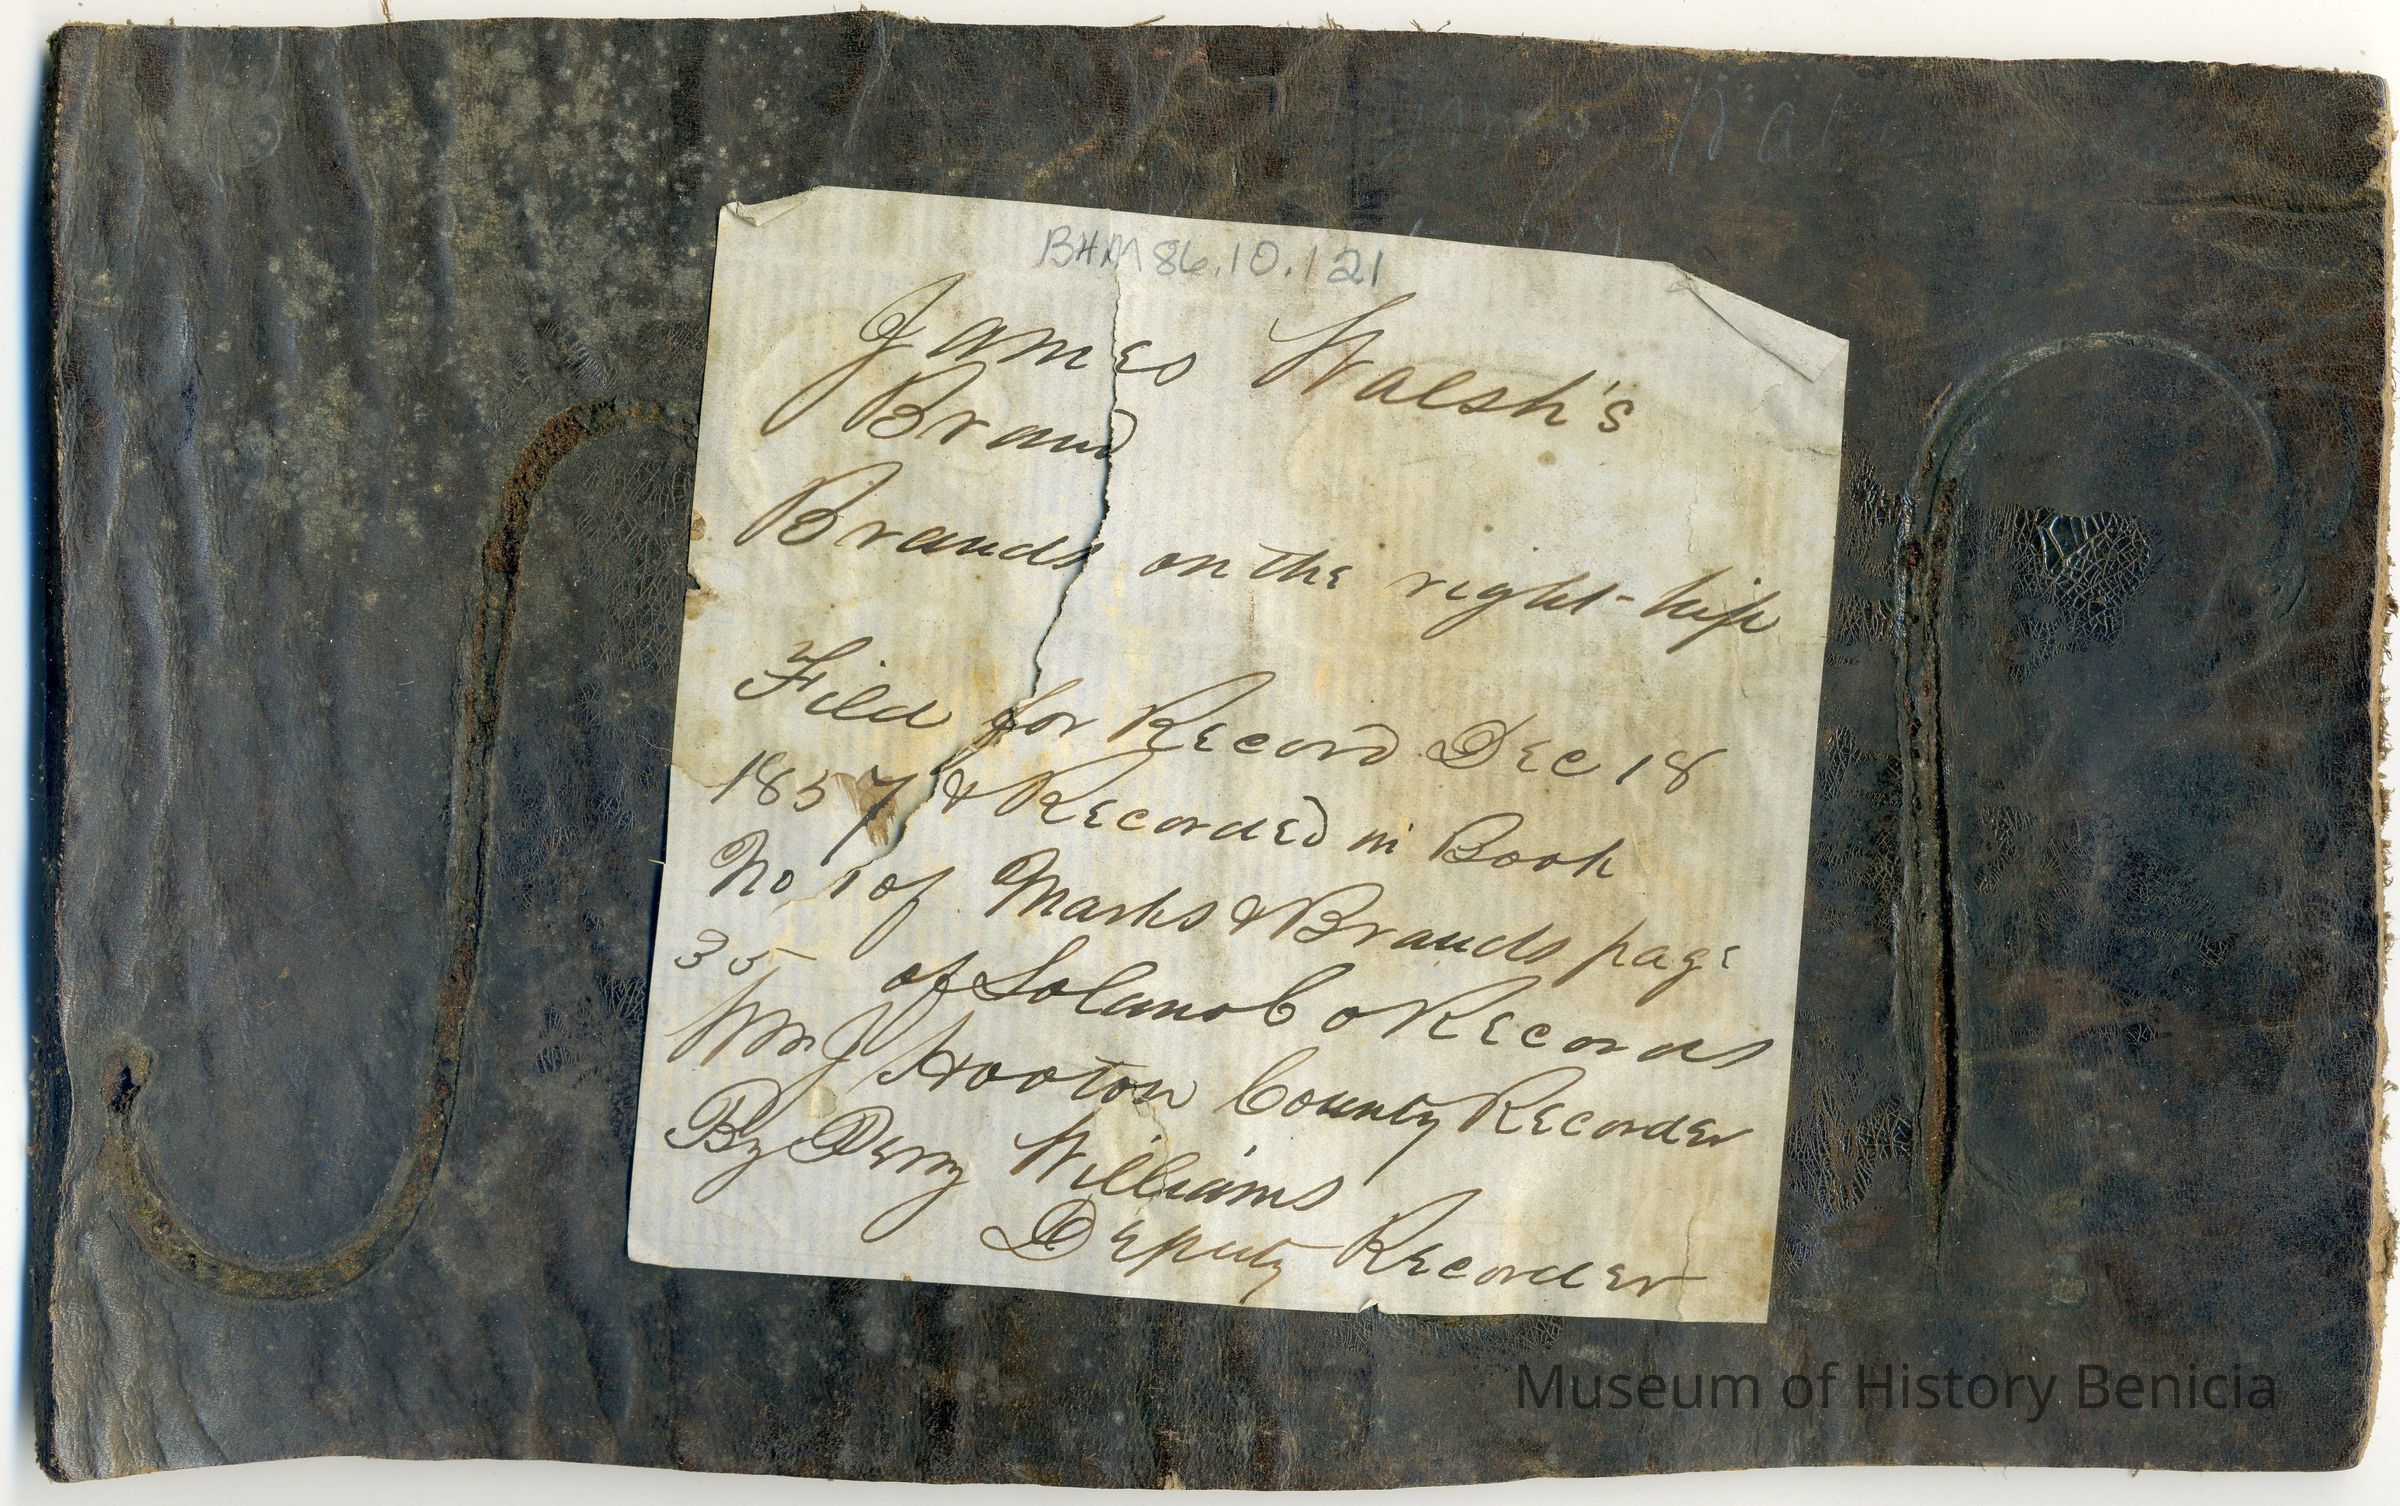 BHM 86.10.121
James Walsh's
Brand
Brands on the right-hip
Filed for Record Dec 18
1857 & Recorded in Book
No 1 of Marks & Brands page
35 of Solano Co Records
Wm J Hooton County Recorder
By Derry Williams
Deputy Recorder
Museum of History Benicia